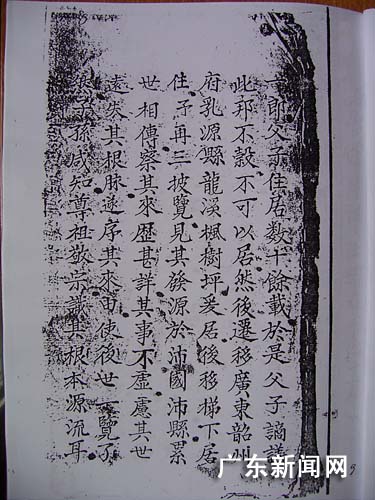 六郎父子住居数十餘載於是父子謫議
此邦不穀不可以居然後遷移廣東韶州
府乳源縣龍溪楓樹坪爰居後移梯下居
住予再三披覽見其發源於沛國沛縣累
世相傳察其來歷甚詳其事不虛慮其世
遠失其根脉遂序其來由使後世一覽了
然子孫咸知尊祖敬宗識其根本源流耳
广东新闻网